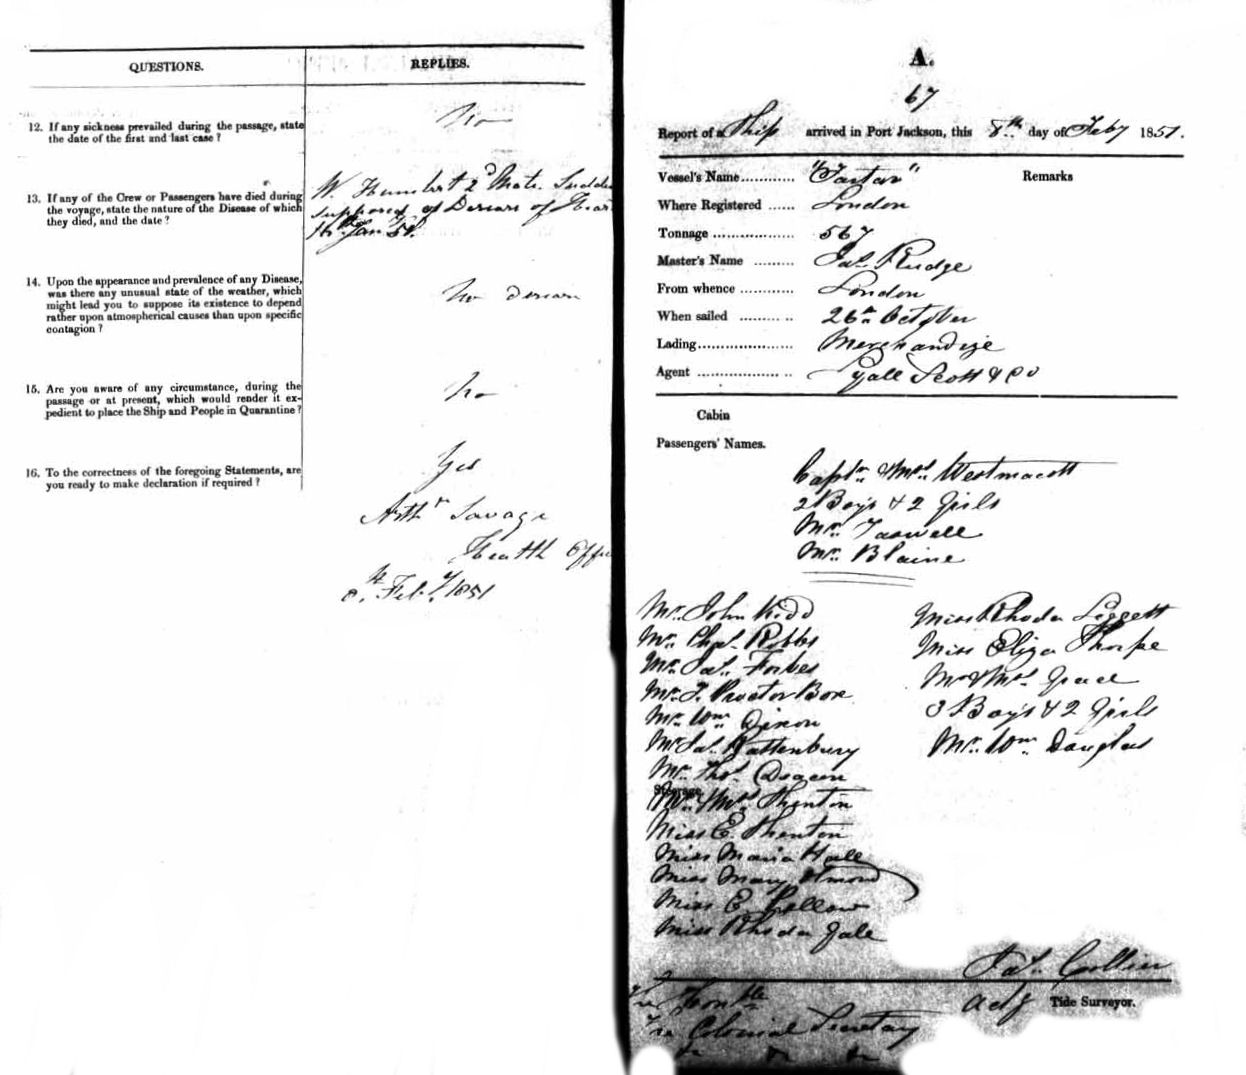 QUESTIONS.
REPLIES.
12. If any sickness prevailed during the passage, state
the date of the first and last case ?
No
13. If any of the Crew or Passengers have died during
the voyage, state the nature of the Disease of which
they died, and the date ?
W. Humbert 2d Mate. Sudden
supposed of Disease of Heart
16th Jan 51.
14. Upon the appearance and prevalence of any Disease,
was there any unusual state of the weather, which
might lead you to suppose its existence to depend
rather upon atmospherical causes than upon specific
contagion ?
No disease
15. Are you aware of any circumstance, during the
passage or at present, which would render it ex-
pedient to place the Ship and People in Quarantine ?
No
16. To the correctness of the foregoing Statements, are
you ready to make declaration if required ?
Yes
Arthr Savage
Health Offi
8th Feby 1851
A.
67
Report of a Ship arrived in Port Jackson, this 8th day of Feby 1851.
Vessel's Name ............ "Tartar" Remarks
Where Registered ...... London
Tonnage .................. 567
Master's Name ......... Jas. Rudge
From whence ............ London
When sailed ......... .. 26th October
Lading..................... Merchandize
Agent .................. .. Lyall Scott & Co
Cabin
Passengers' Names.
Captn. & Mrs. Westmacott
2 Boys & 2 Girls
Mr. Taswell
Mr. Blaine
Mr. John Kidd
Mr. Chas. Robbs
Mr. Jas. Forbes
Mr. J. Proctor Box
Mr. Wm. Dixon
Mr. Jas. Rattenbury
Mr. Thos. Deacon
Steerage
Mr. & Mrs. Thenton
Miss E. Thenton
Miss Maria Hall
Miss Mary Almond
Miss E.
Miss Rhoda Gale
Miss Rhoda Liggett
Miss Eliza Thorpe
Mr & Mrs. Grace
3 Boys & 2 Girls
Mr. Wm. Douglas
Jas. Collin
actg Tide Surveyor.
The Honble
The Colonial Secretary